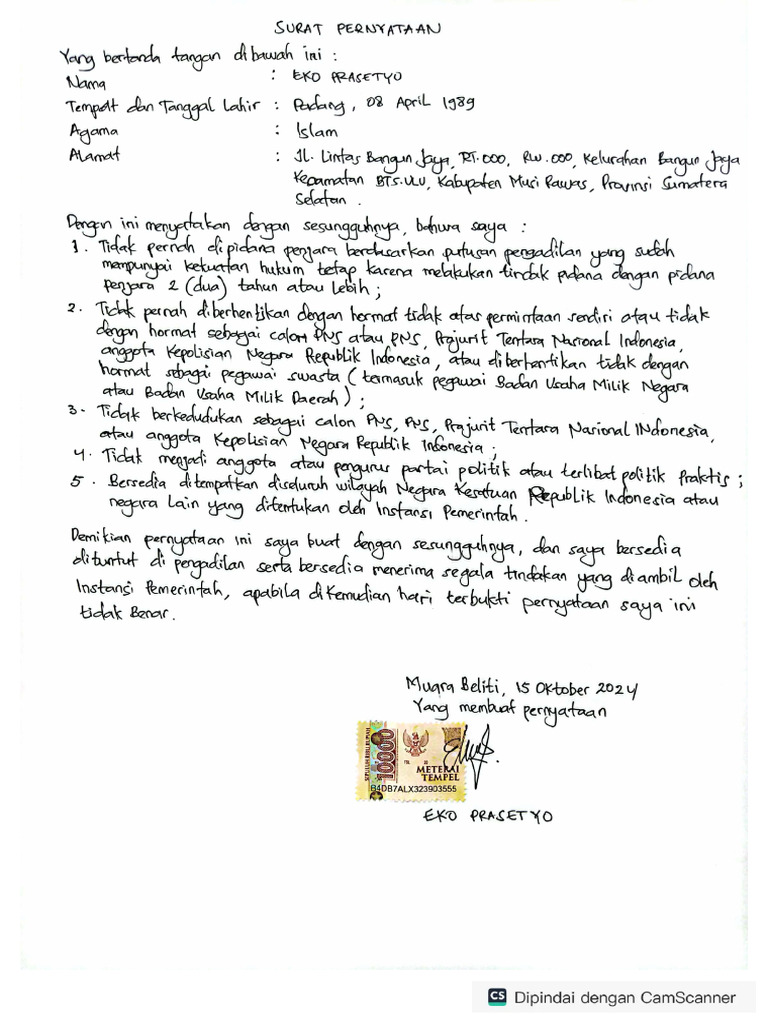 SURAT PERNYATAAN
Yang bertanda tangan dibawah ini :
Nama : EKO PRASETYO
Tempat dan Tanggal Lahir : Padang, 08 April 1989
Agama : Islam
Alamat : Jl. Lintas Bangun Jaya, RT.000, RW.000, Kelurahan Bangun Jaya
Kecamatan BTS.ULU, Kabupaten Musi Rawas, Provinsi Sumatera
Selatan.
Dengan ini menyatakan dengan sesungguhnya, bahwa saya :
1. Tidak pernah dipidana penjara berdasarkan putusan pengadilan yang sudah
mempunyai kekuatan hukum tetap karena melakukan tindak pidana dengan pidana
penjara 2 (dua) tahun atau lebih;
2. Tidak pernah diberhentikan dengan hormat tidak atas permintaan sendiri atau tidak
dengan hormat sebagai calon PNS atau PNS, Prajurit Tentara Nasional Indonesia,
anggota Kepolisian Negara Republik Indonesia, atau diberhentikan tidak dengan
hormat sebagai pegawai swasta (termasuk pegawai Badan Usaha Milik Negara
atau Badan Usaha Milik Daerah);
3. Tidak berkedudukan sebagai calon PNS, PNS, Prajurit Tentara Nasional INdonesia,
atau anggota Kepolisian Negara Republik Indonesia;
4. Tidak menjadi anggota atau pengurus partai politik atau terlibat politik Praktis;
5. Bersedia ditempatkan diseluruh wilayah Negara Kesatuan Republik Indonesia atau
negara Lain yang ditentukan oleh Instansi Pemerintah.
Demikian pernyataan ini saya buat dengan sesungguhnya, dan saya bersedia
dituntut di pengadilan serta bersedia menerima segala tindakan yang diambil oleh
Instansi Pemerintah, apabila dikemudian hari terbukti pernyataan saya ini
tidak Benar.
Muara Beliti, 15 Oktober 2024
Yang membuat pernyataan
SEPULUH RIBU RUPIAH
10000
METERAI
TEMPEL
B4DB7ALX323903555
EKO PRASETYO
CS Dipindai dengan CamScanner